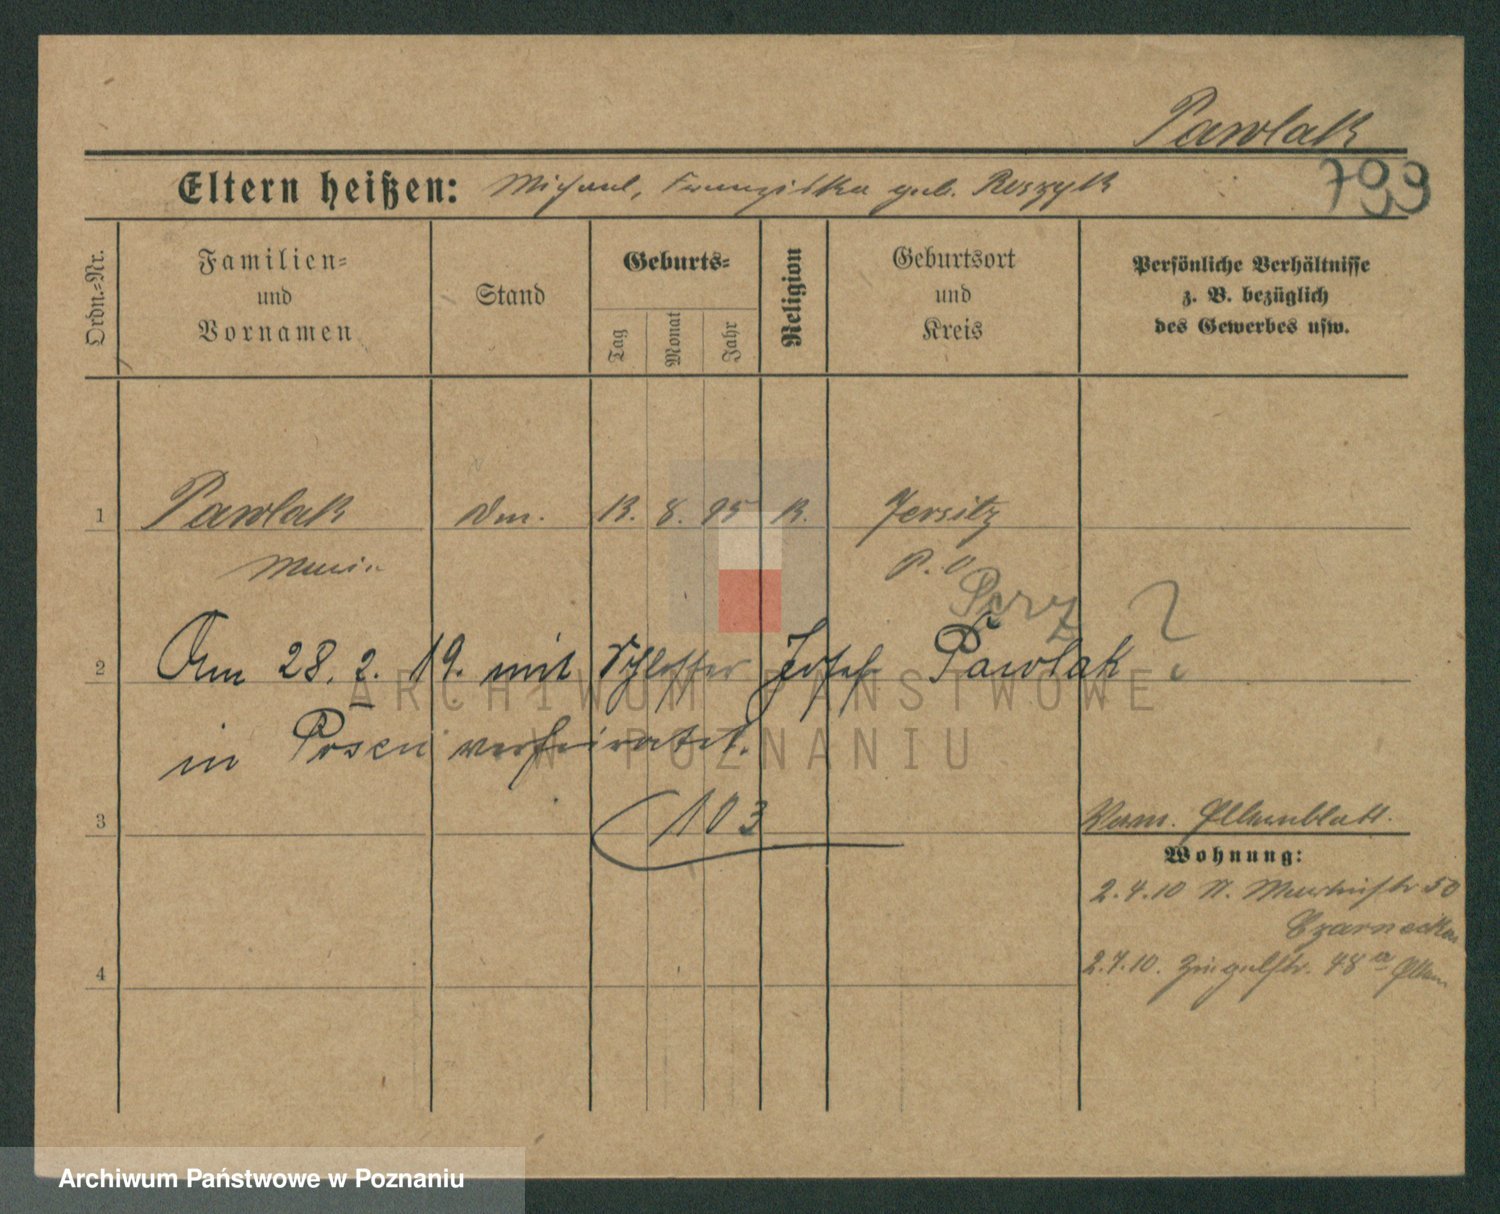 Pawlak
Eltern heißen: Michael, Franziska geb. Roszyk
799
Ordn.=Nr.
Familien=
und
Vornamen
Stand
Geburts=
Tag
Monat
Jahr
Religion
Geburtsort
und
Kreis
Persönliche Verhältnisse
z. B. bezüglich
des Gewerbes usw.
1 Pawlak 8. 95 K. Jersitz
Maria P. O
?
2 Am 28. 2. 19. mit Schlosser Josef Pawlak
in Posen verheiratet.
103
3
Vorm. Elternblatt.
Wohnung:
2.4.10 50
Czarnecka
4 2.7.10. 48a Eltern
ARCHIWUM PAŃSTWOWE
W POZNANIU
Archiwum Państwowe w Poznaniu